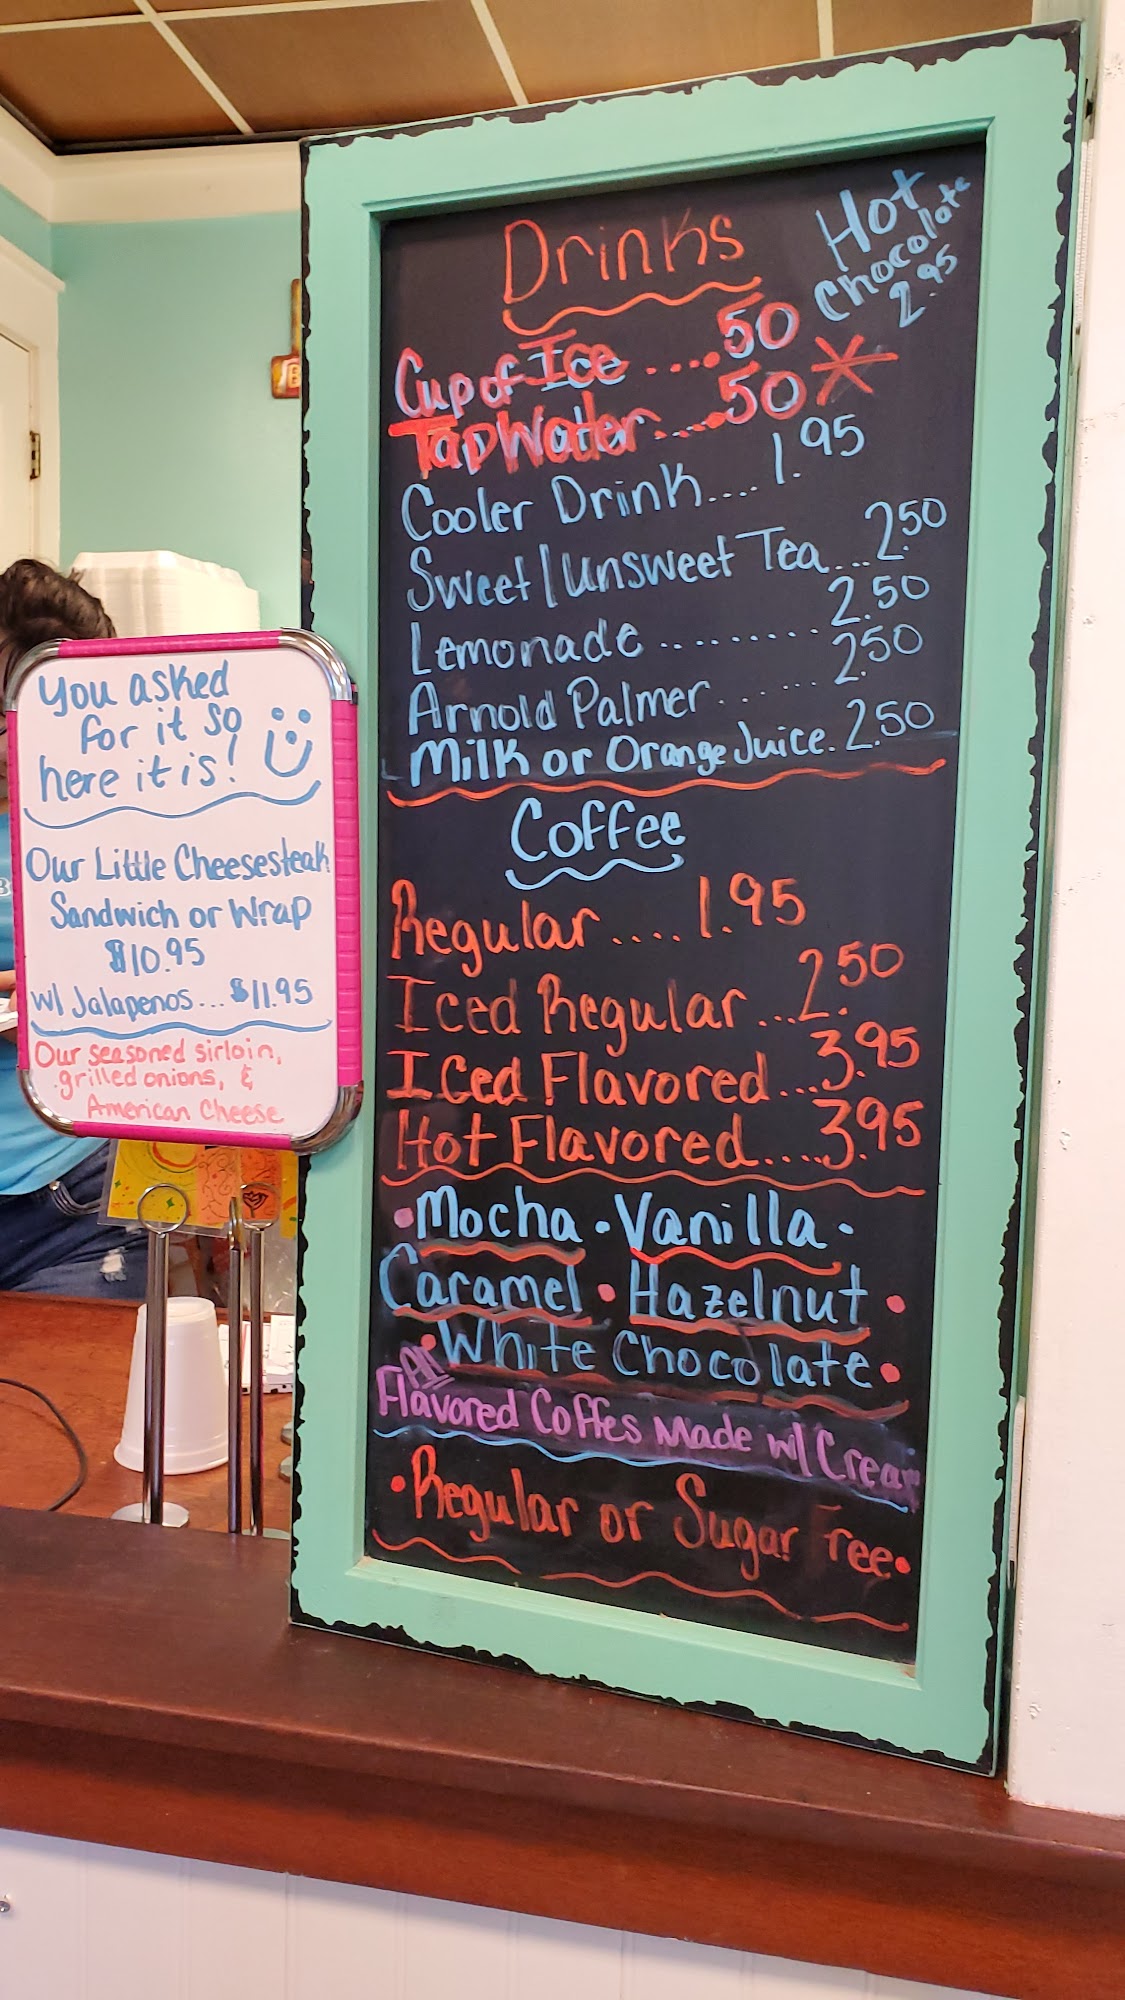 Drinks
Hot
Chocolate
2.95
Cup of Ice .....50
Tap Water.....50 *
Cooler Drink....1.95
Sweet/Unsweet Tea...2.50
Lemonade .........2.50
Arnold Palmer ......2.50
Milk or Orange Juice.2.50
Coffee
Regular ....1.95
Iced Regular ...2.50
Iced Flavored ...3.95
Hot Flavored....3.95
•Mocha •Vanilla •
Caramel • Hazelnut •
•White Chocolate•
All
Flavored Coffes Made w/ Cream
•Regular or Sugar Free•
You asked
for it so
here it is!
Our Little Cheesesteak
Sandwich or Wrap
$10.95
w/ Jalapenos...$11.95
Our seasoned sirloin,
grilled onions, &
American Cheese